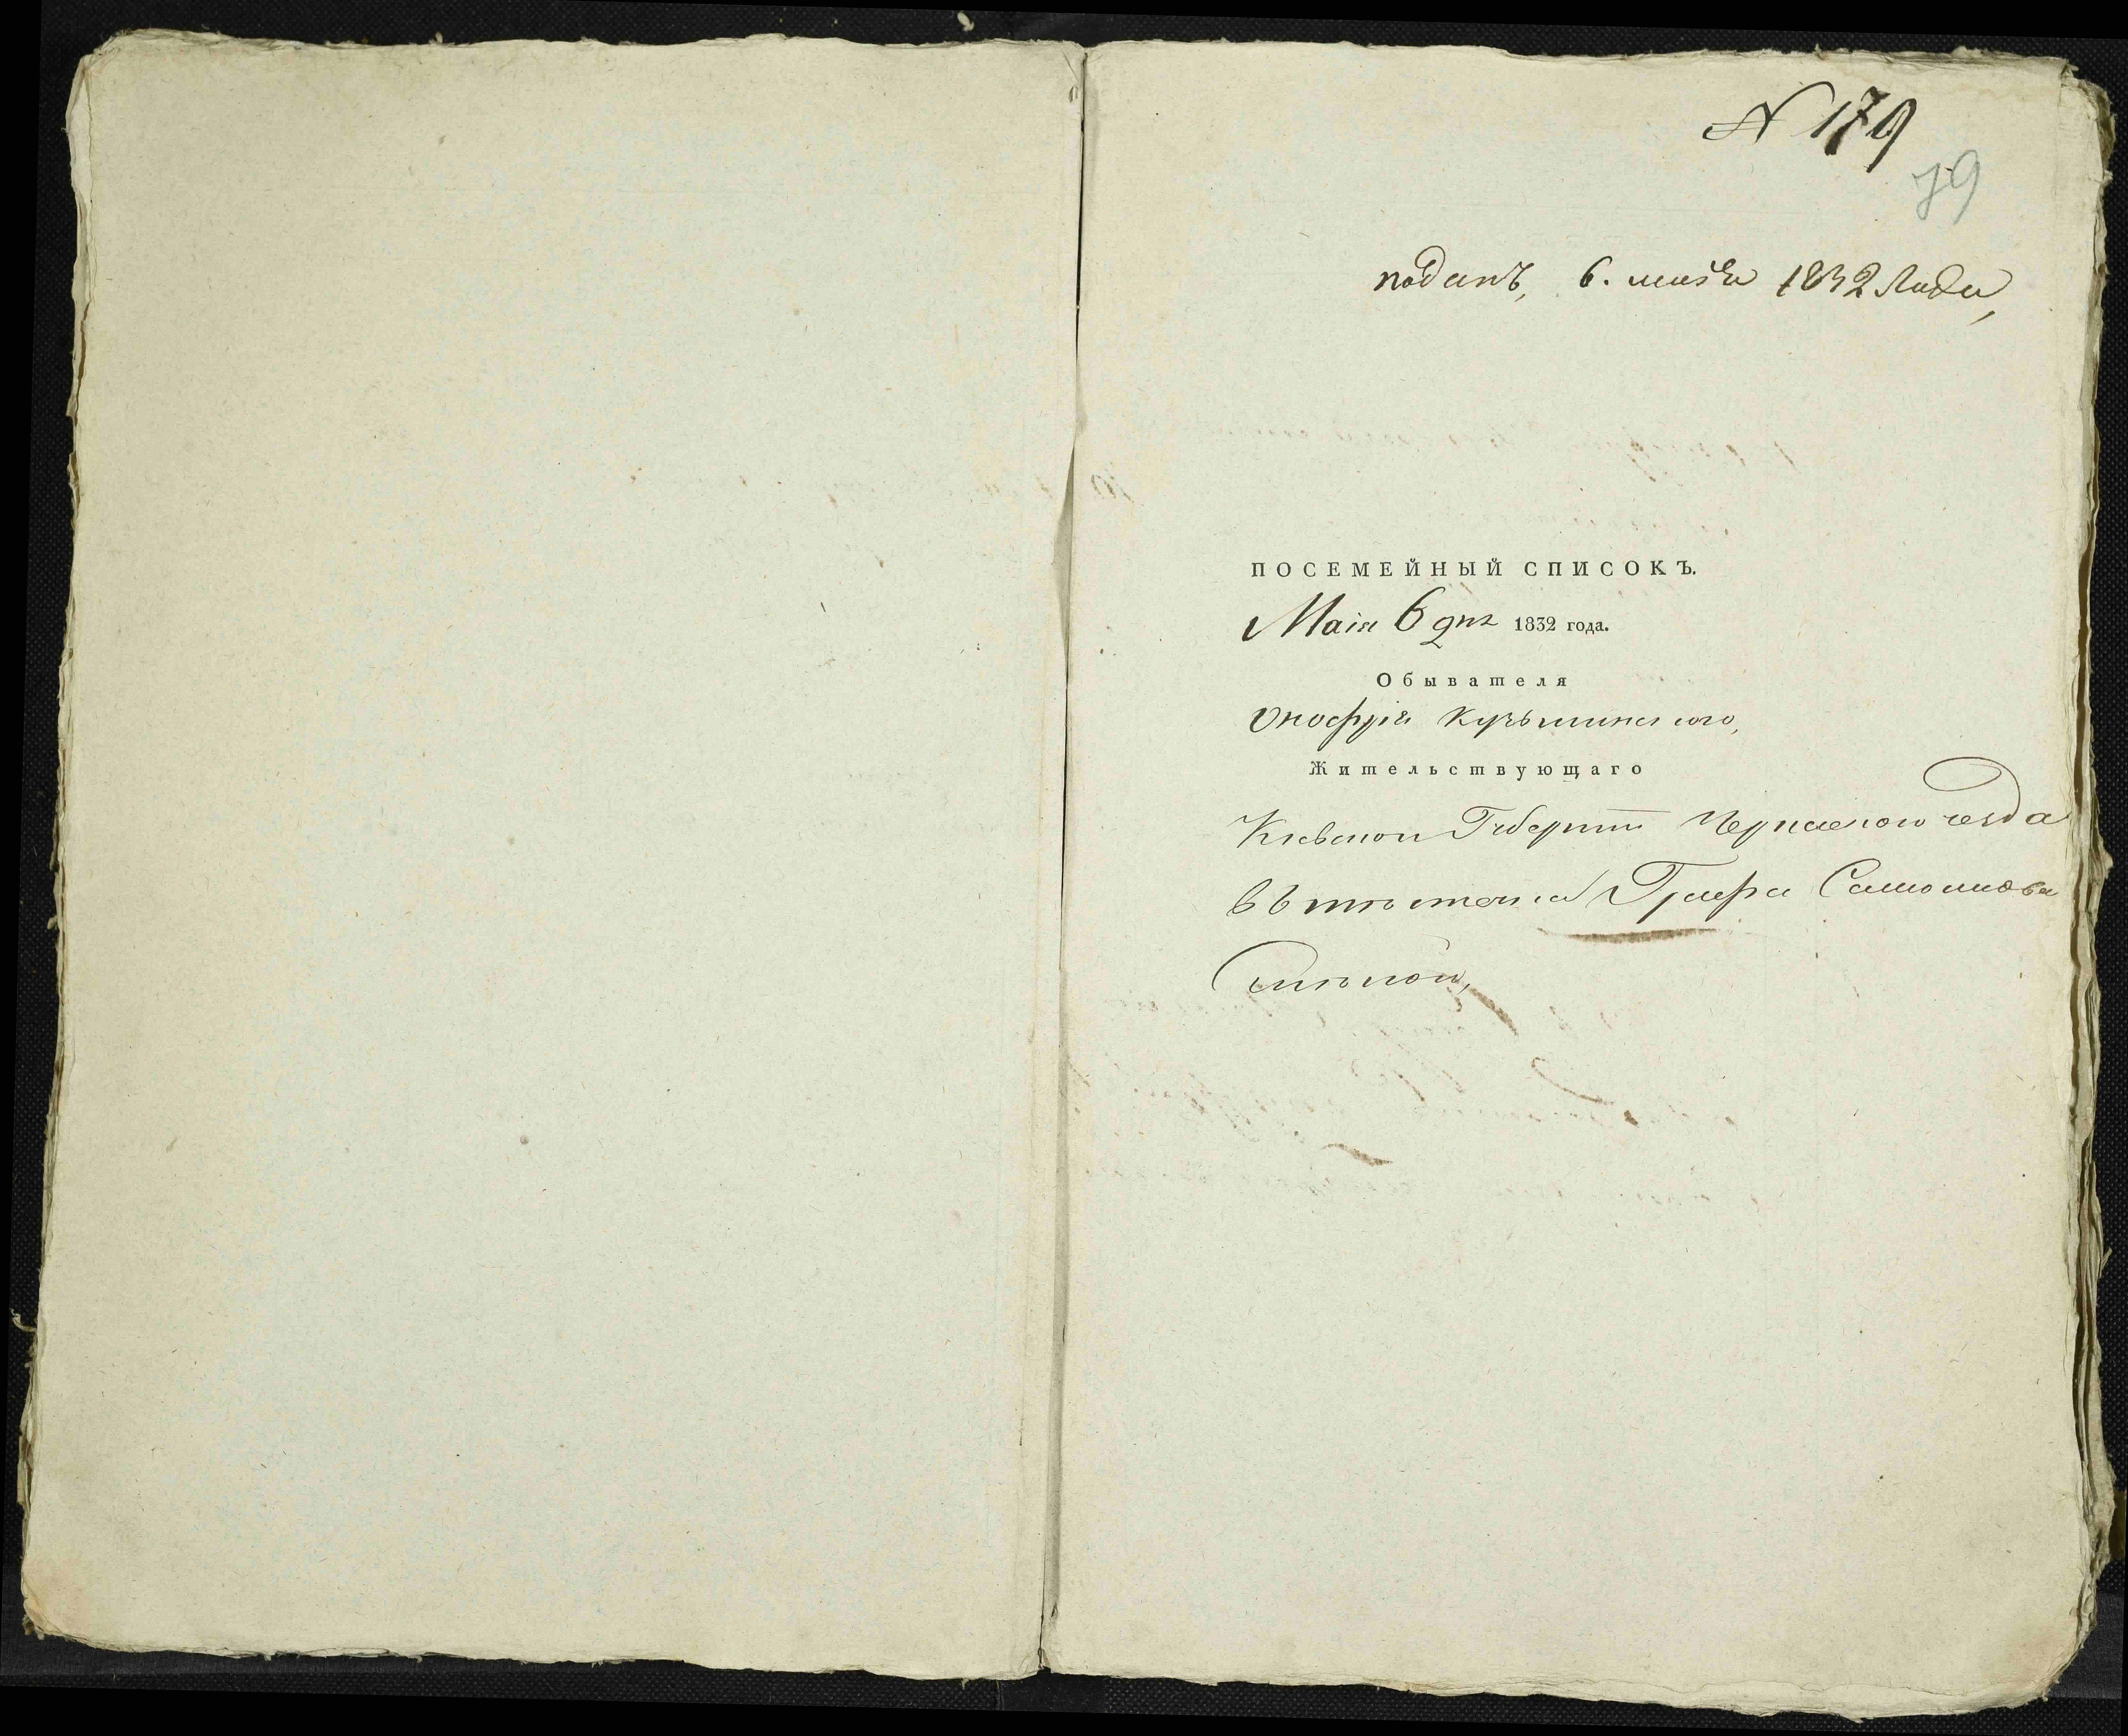 N 179
79
поданъ, 6. маія 1832 года,
ПОСЕМЕЙНЫЙ СПИСОКЪ.
Маія 6 дня 1832 года.
Обывателя
Онофрія Кузьминского,
Жительствующаго
Кіевской Губерніи Черкаского уезда
въ местечке Графа Самойлова
Смелой,